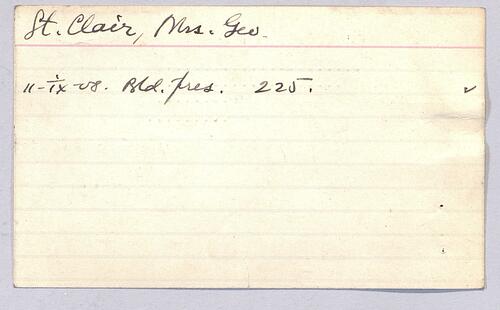 St. Clair, Mrs. Geo.
11-IX-08. Bld. pres. 225. ✓